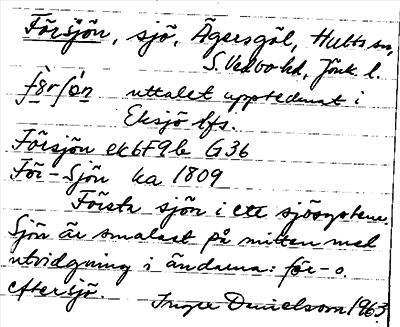 Försjön, sjö, Ägersgöl, Hults sn,
S. Vedbo hd, Jönk. l.
fö̀rʃö́n uttalet upptecknat i
Eksjö lfs.
Försjön ek 6F9b G36
För-Sjön ka 1809
Första sjön i ett sjösystem.
Sjön är smalast på mitten med
utvidgning i ändarna: för- o.
eftersjö.
Inger Danielsson 1963